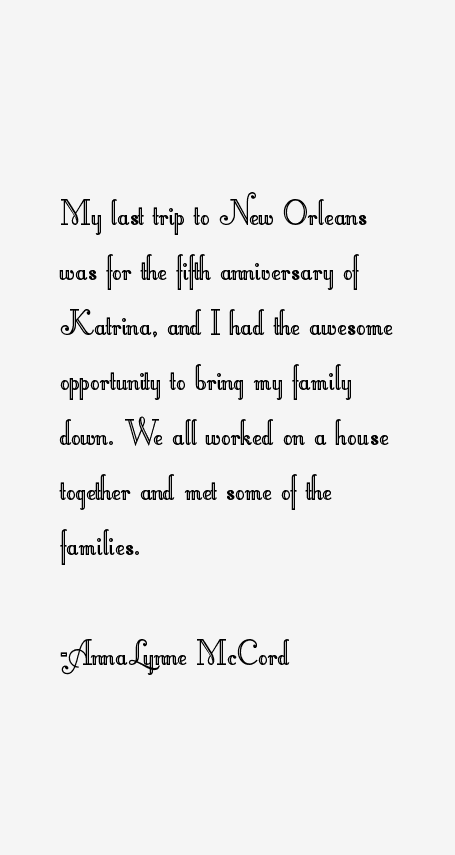 My last trip to New Orleans
was for the fifth anniversary of
Katrina, and I had the awesome
opportunity to bring my family
down. We all worked on a house
together and met some of the
families.
-AnnaLynne McCord